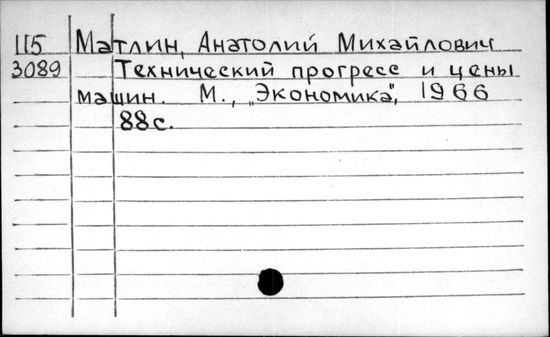 115 Матлин, Анатолий Михайлович
3089 Технический прогресс и цены
машин. М., „Экономика", 1966
88с.